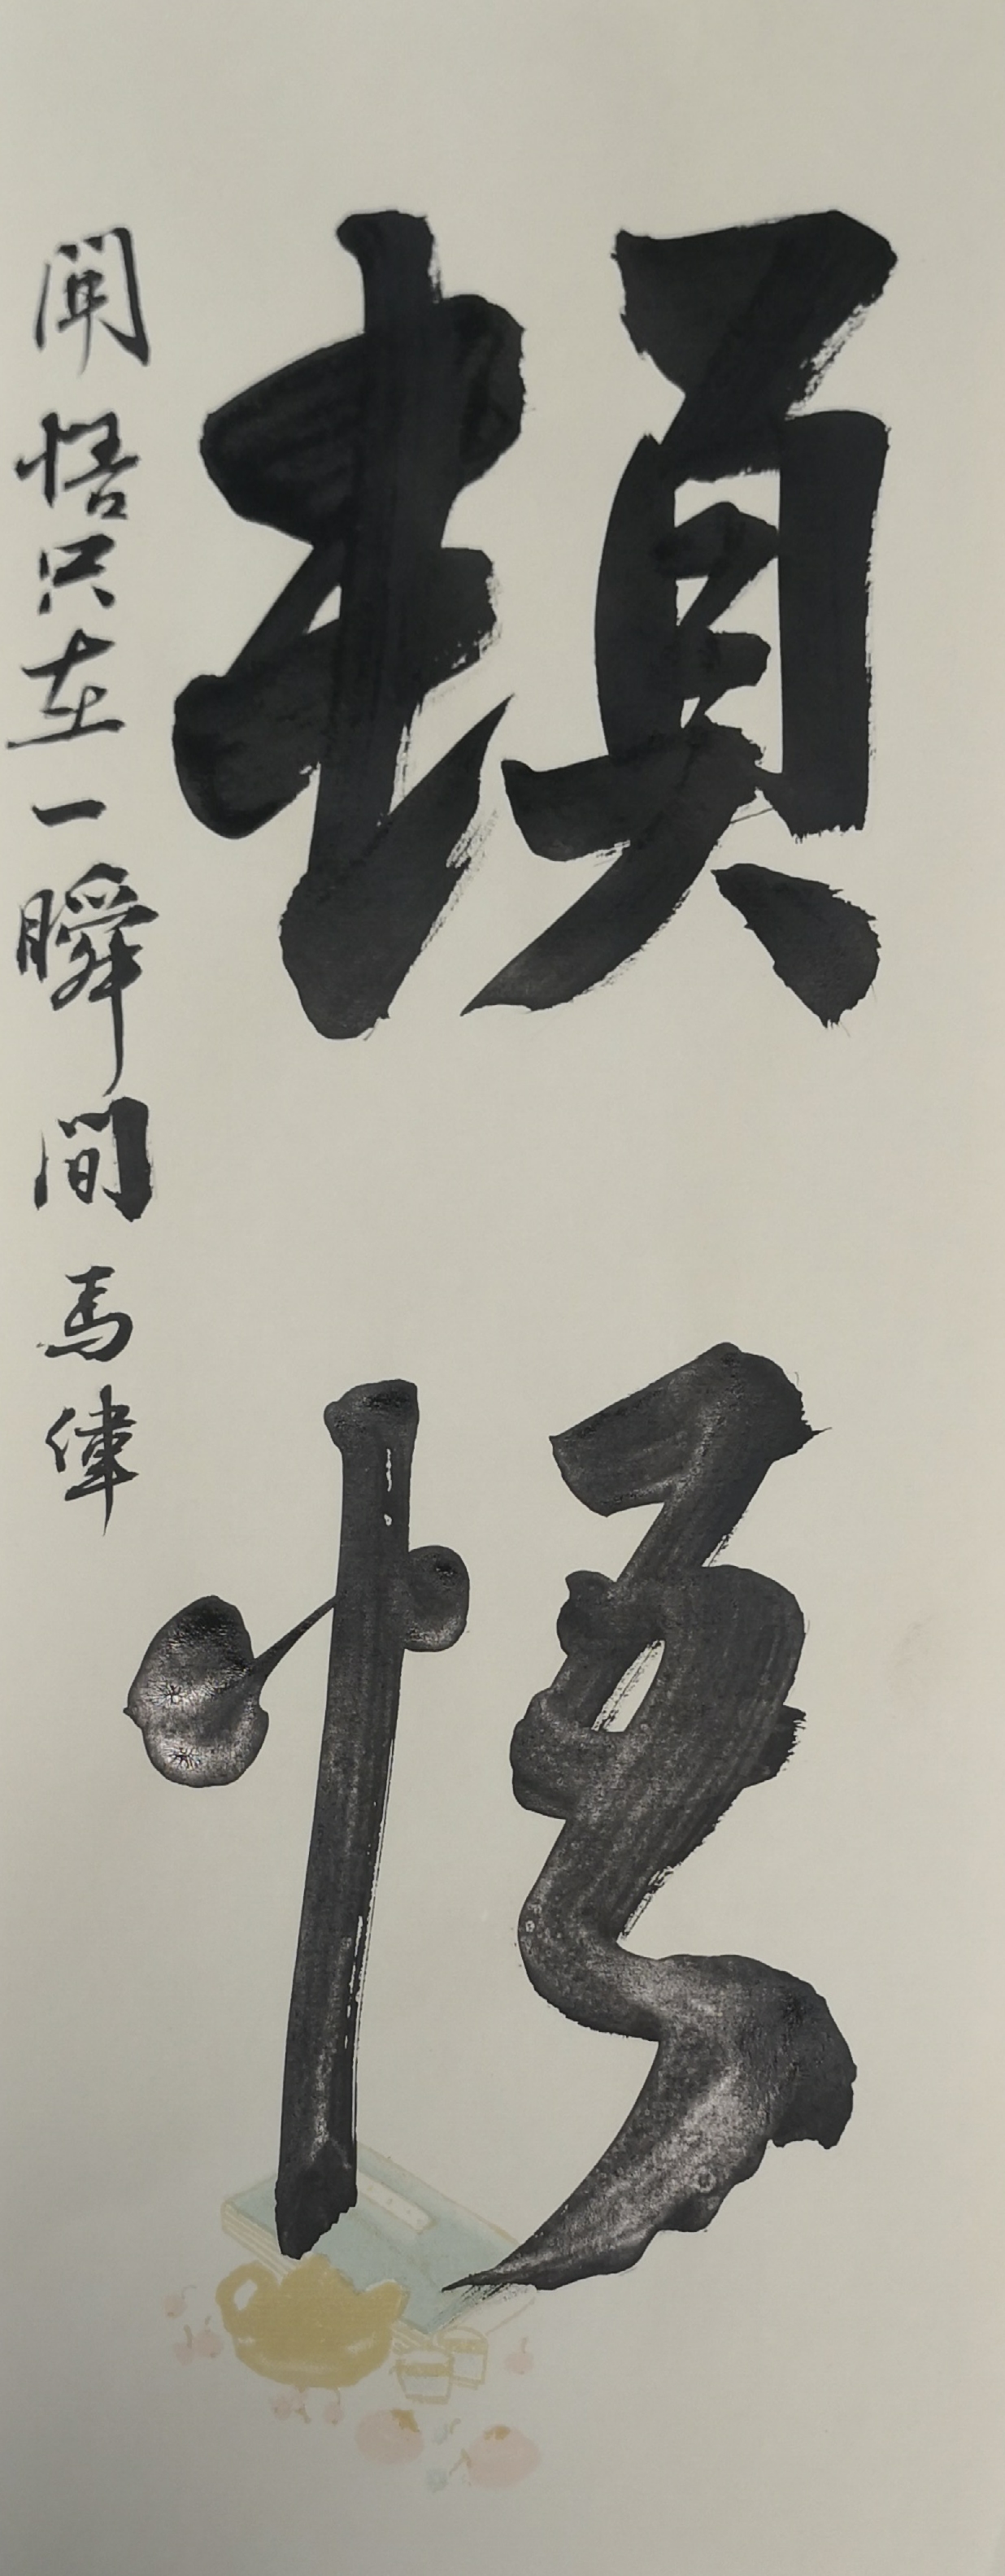 頓悟
開悟只在一瞬間 馬偉